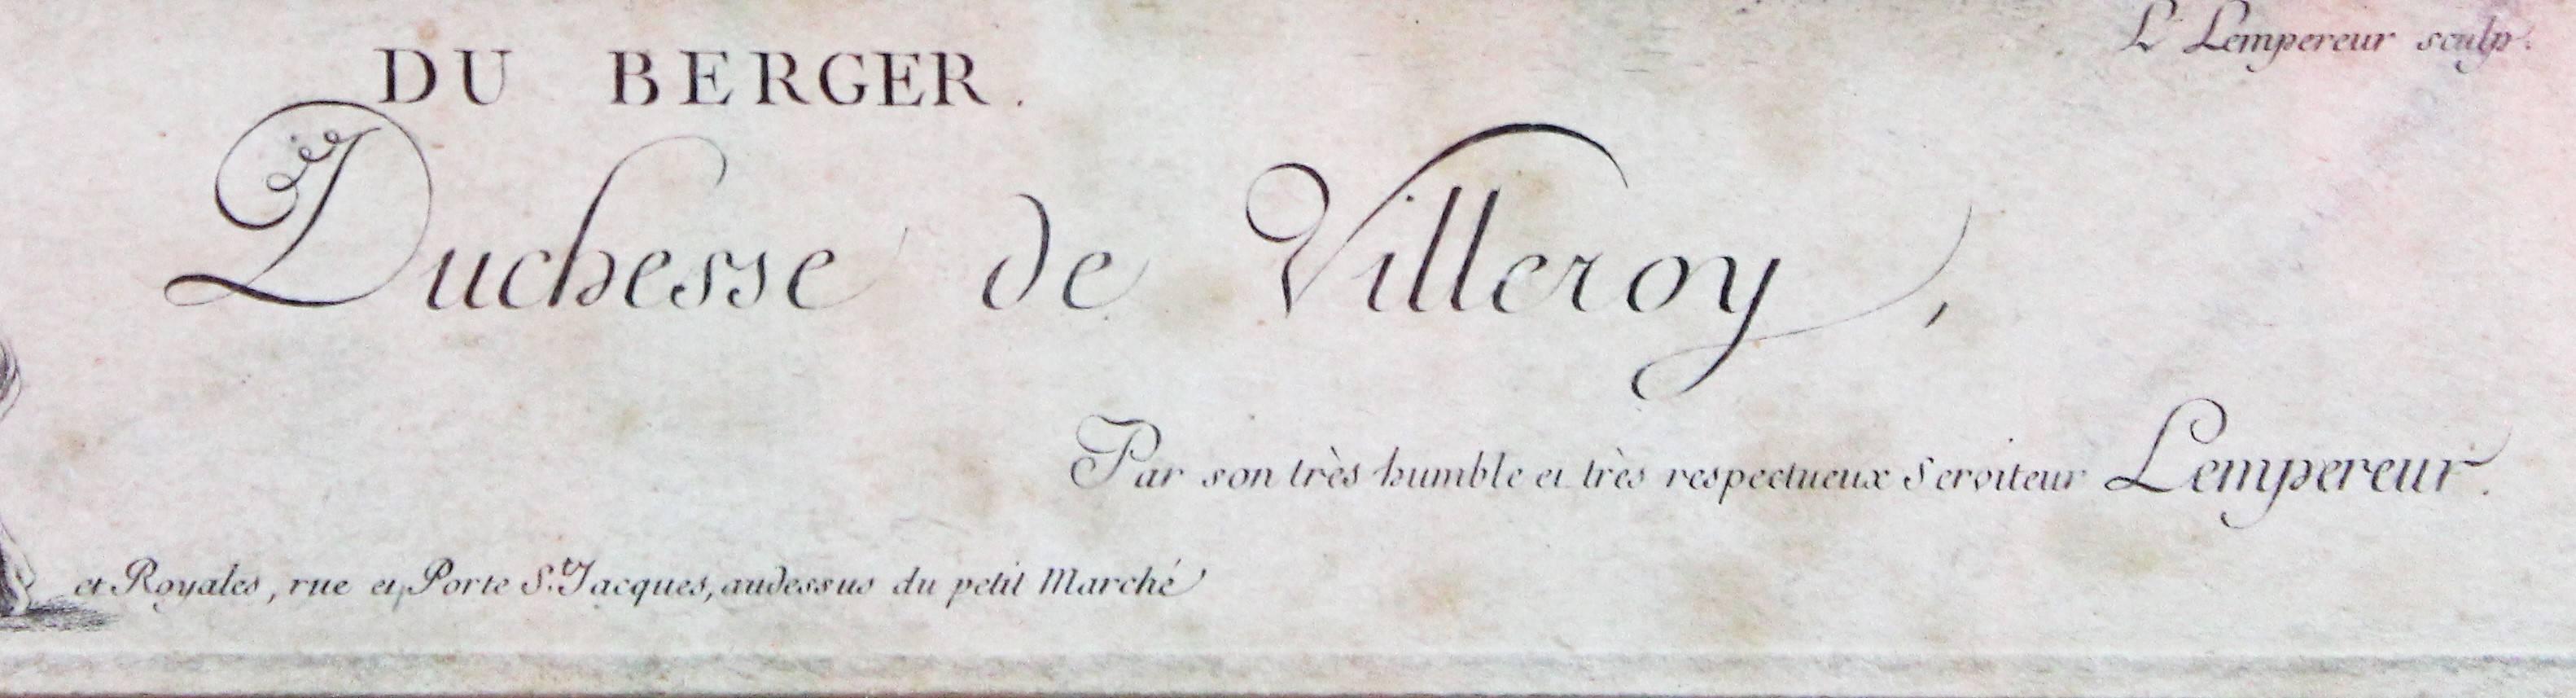 L. Lempereur sculp.
DU BERGER.
Duchesse de Villeroy,
Par son très humble et très respectueux Serviteur Lempereur.
et Royales, rue et Porte S.t Jacques, audessus du petit Marché